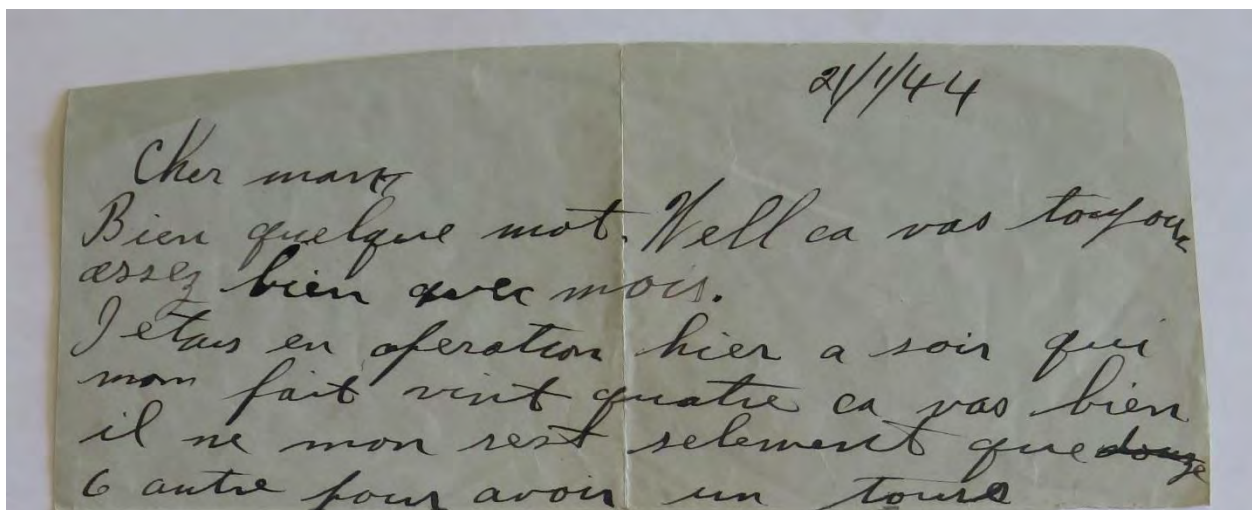 21/1/44
Cher
Bien quelque mot. Well ca vas toujour
assez bien avec mois.
J etais en operation hier a soir qui
mon fait vint quatre ca vas bien
il ne mon rest selement que douze
6 autre pour avoir un tours